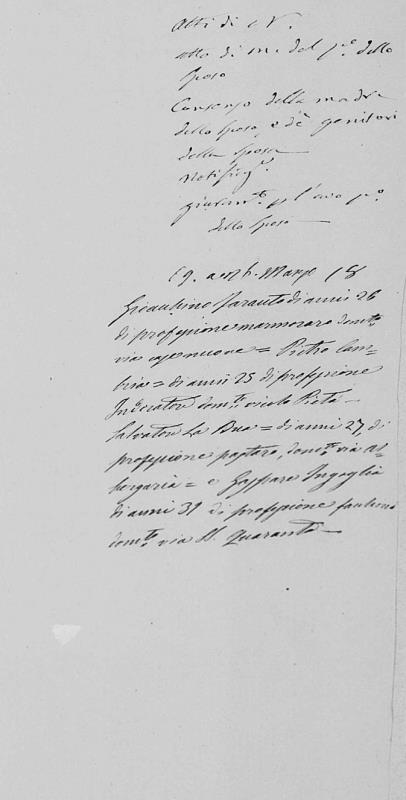 Atti di N.
atto di m. del p.e dello
sposo
Consenso della madre
dello sposo, e de' genitori
della sposa
Notific.e
giuram.to p l'avo p.o
dello sposo
19. a 6. Marzo 18
Gioacchino Taranto di anni 26
di professione marmoraro dom.to
via case nuove = Pietro Cam-
bria = di anni 25 di professione
dom.to vicolo Pietà
Salvatore La Bua = di anni 27, di
professione pastaro, dom.to via al-
bergaria = e Gaspare Ingoglia
di anni 31 di professione
dom.to via SS. Quaranta